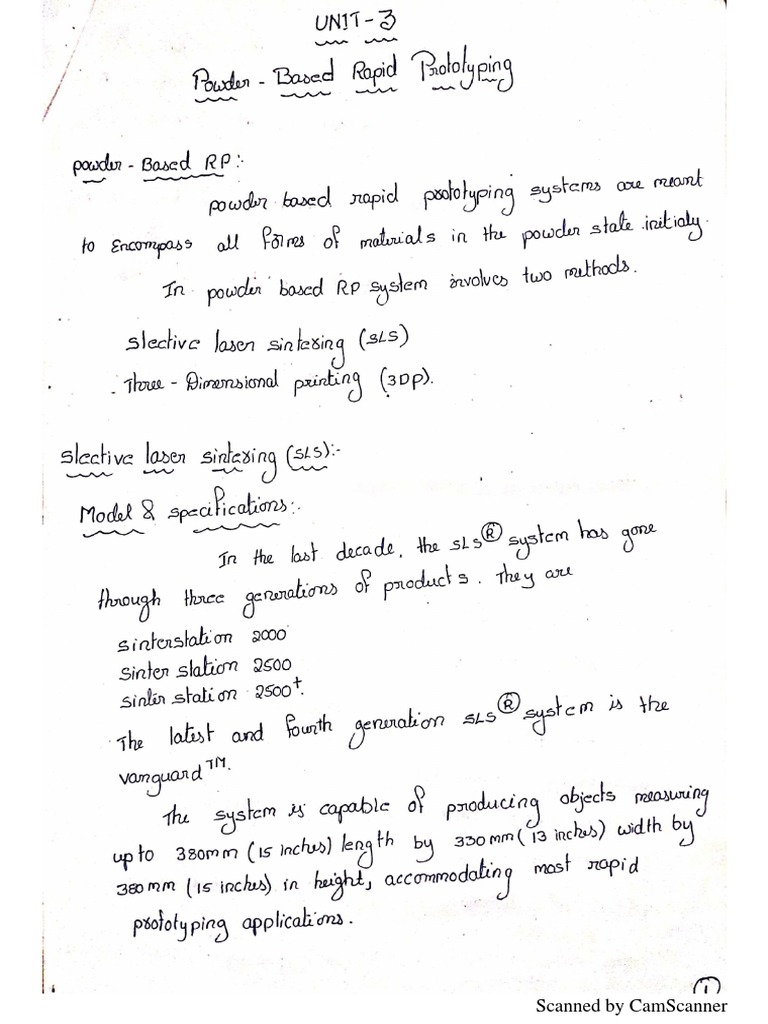 UNIT-3
Powder-Based Rapid Prototyping
powder-Based RP:-
powder based rapid prototyping systems are meant
to Encompass all forms of materials in the powder state initialy.
In powder based RP system involves two methods.
Slective laser sintering (SLS)
Three-Dimensional printing (3DP).
Slective laser sintering (SLS):-
Model & specifications:-
In the last decade, the SLS® system has gone
through three generations of products. They are
sinterstation 2000
sinter station 2500
sinter station 2500+.
The latest and fourth generation SLS® system is the
vanguard™.
The system is capable of producing objects measuring
upto 380mm (15 inches) length by 330mm (13 inches) width by
380mm (15 inches) in height, accommodating most rapid
prototyping applications.
1
Scanned by CamScanner